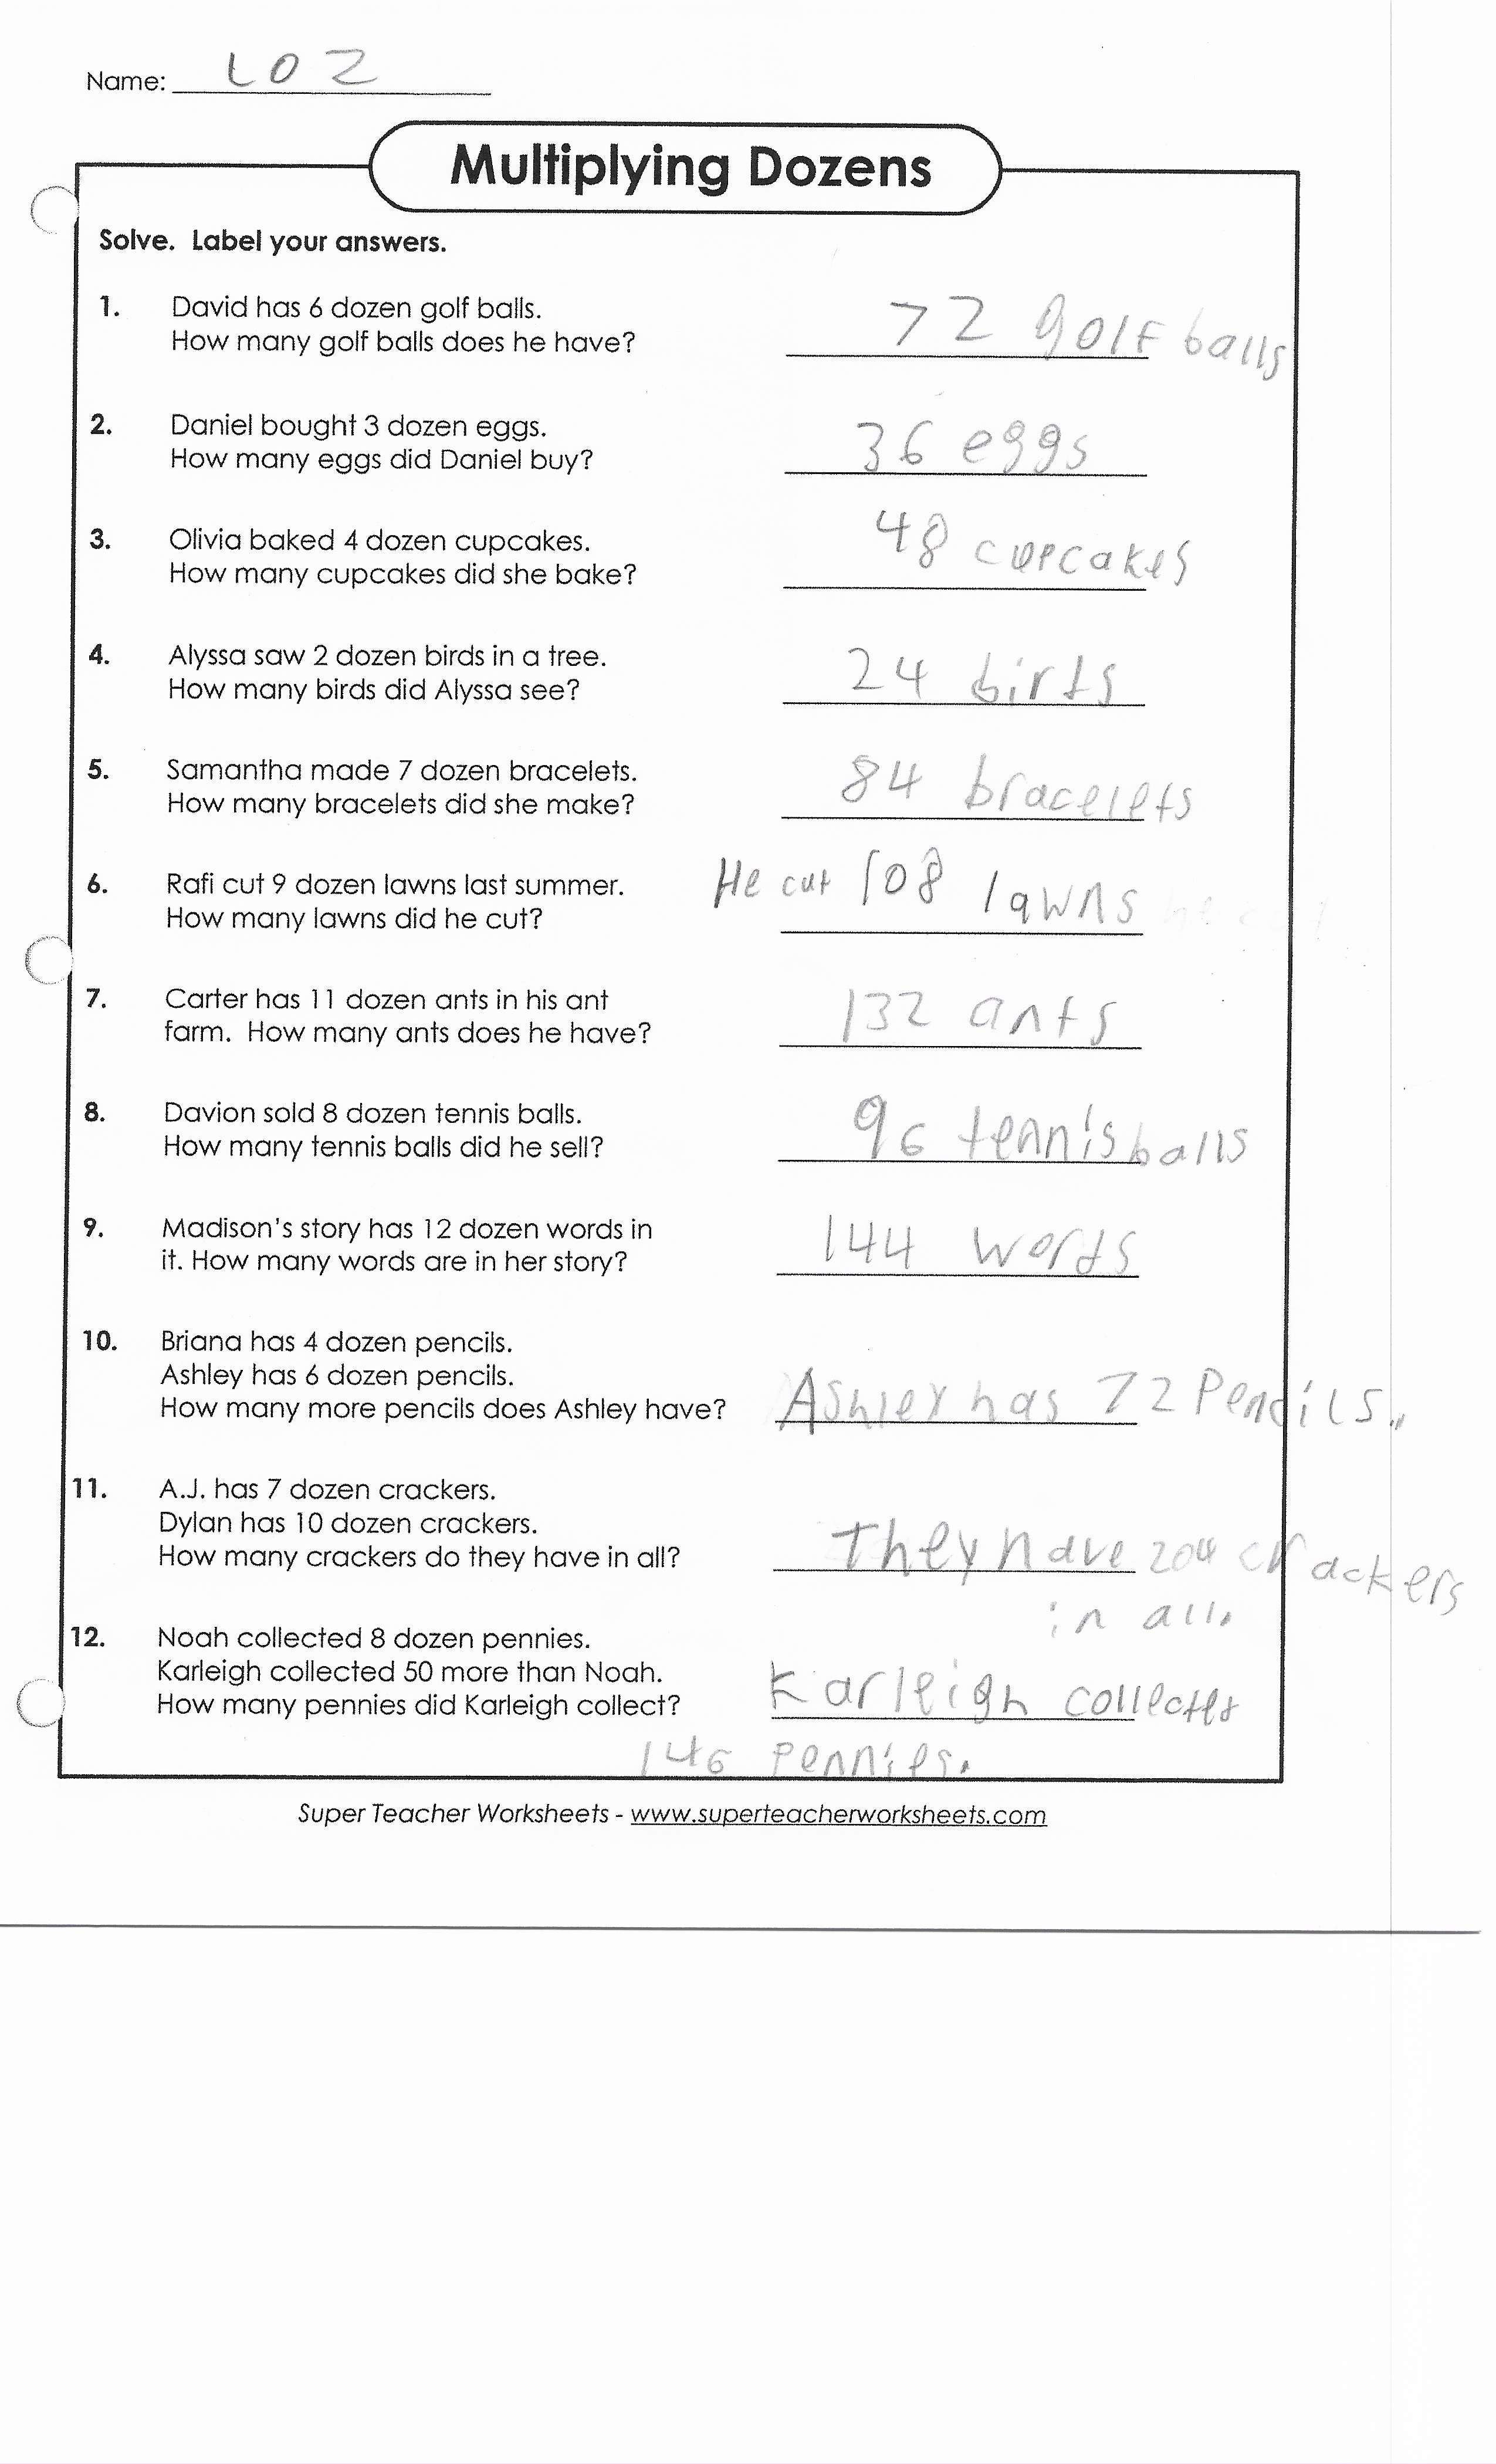 Name: LOZ
Multiplying Dozens
Solve. Label your answers.
1. David has 6 dozen golf balls.
How many golf balls does he have? 72 golf balls
2. Daniel bought 3 dozen eggs.
How many eggs did Daniel buy? 36 eggs
3. Olivia baked 4 dozen cupcakes.
How many cupcakes did she bake? 48 cupcakes
4. Alyssa saw 2 dozen birds in a tree.
How many birds did Alyssa see? 24 birds
5. Samantha made 7 dozen bracelets.
How many bracelets did she make? 84 bracelets
6. Rafi cut 9 dozen lawns last summer.
How many lawns did he cut? He cut 108 lawns
7. Carter has 11 dozen ants in his ant
farm. How many ants does he have? 132 ants
8. Davion sold 8 dozen tennis balls.
How many tennis balls did he sell? 96 tennis balls
9. Madison's story has 12 dozen words in
it. How many words are in her story? 144 words
10. Briana has 4 dozen pencils.
Ashley has 6 dozen pencils.
How many more pencils does Ashley have? Ashley has 72 Pencils.
11. A.J. has 7 dozen crackers.
Dylan has 10 dozen crackers.
How many crackers do they have in all? They have 204 crackers
in all.
12. Noah collected 8 dozen pennies.
Karleigh collected 50 more than Noah.
How many pennies did Karleigh collect? Karleigh collected
146 Pennies.
Super Teacher Worksheets - www.superteacherworksheets.com